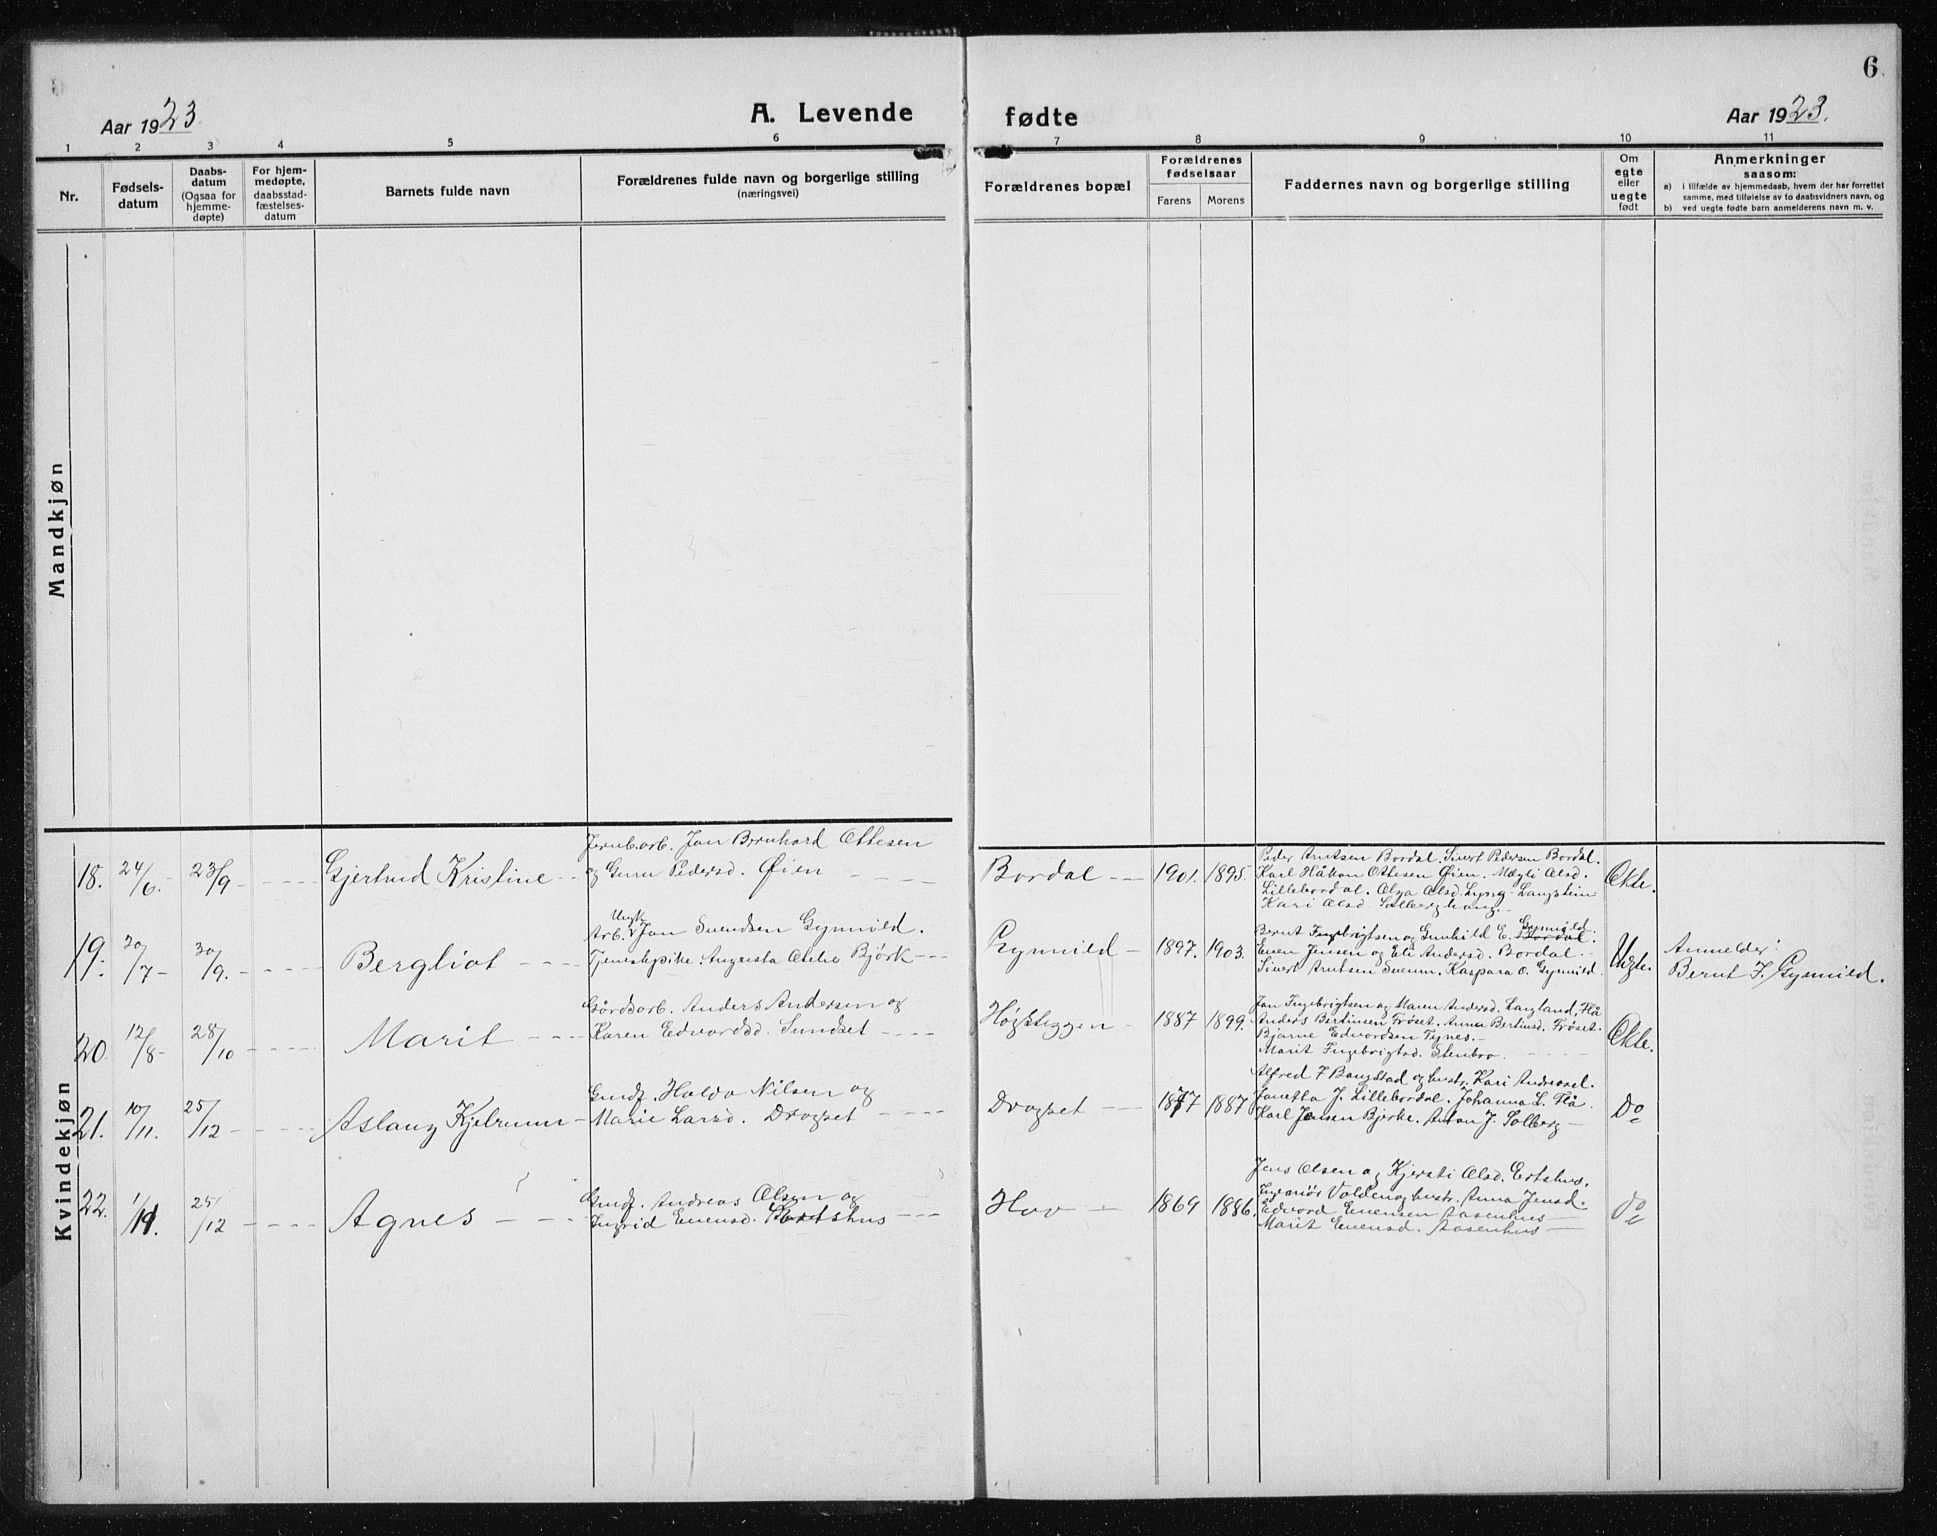 6
Aar 1923
A. Levende
fødte
Aar 1923.
1 2 3 4 5 6 7 8 9 10 11
Nr.
Fødsels-
datum
Daabs-
datum
(Ogsaa for
hjemme-
døpte)
For hjem-
medøpte,
daabsstad-
fæstelses-
datum
Barnets fulde navn
Forældrenes fulde navn og borgerlige stilling
(næringsvei)
Forældrenes bopæl
Forældrenes
fødselsaar
Farens Morens
Faddernes navn og borgerlige stilling
Om
egte
eller
uegte
født
Anmerkninger
saasom:
a) i tilfælde av hjemmedaab, hvem der har forrettet
samme, med tilføielse av to daabsvidners navn, og
b) ved uegte fødte barn anmelderens navn m. v.
Mandkjøn
Kvindekjøn
18. 24/6. 23/9 Gjertrud Kristine
Jernb.arb. Jon Bernhard Ottesen
og Guru Pedersd. Øien
Bordal 1901. 1895.
Peder Arntsen Bordal. Sivert Pedersen Bordal.
Karl Håkon Ottesen Øien. Olsd.
Lillebordal. Olga Olsd. Lyng Langstein
Kari Olsd. Solberghaug.
Ekte.
19. 30/7 30/9. Bergliot
Ungk.
Arb. Jon Svendsen Gynnild.
Tjenestpike Augusta Otelie Björk
Gynnild 1897. 1903.
Gynnild.
Bernt Ingebrigtsen og Gunhild E. Bordal.
Even Jensen og Eli Andersd. Bordal
Sivert Arntsen Svenn. Kaspara O. Gynnild.
Uegte.
Anmelder:
Bernt I. Gynnild.
20. 12/8 28/10 Marit
Gårdsarb. Anders Andersen og
Karen Edvardsd. Sundset
Högsteggen 1887 1899.
Jon Ingebrigtsen og Maren Andersd. Flå
Anders Bertinsen Fröset. Anna Bertinsd. Fröset.
Bjarne Edvardsen Tynes.
Marit Ingebrigtsd. Stenbro.
Ekte.
21. 10/11. 25/12 Aslaug Kjelrunn
Gmdf. Haldo Nilsen og
Marie Larsd. Drogset
Drogset 1877 1887
Alfred I Bangstad og hustr. Kari Andreasd.
Janetta J. Lillebordal. Johanna L. Flå.
Karl Jensen Bjerke. Anton J. Solberg
Do
22. 1/11. 25/12 Agnes
Gmdf. Andreas Olsen og
Ingrid Evensd.
Hov 1869 1886.
Jens Olsen og Kjersti Olsd. Ertshus.
Volden og hustr. Anna Jensd.
Edvard Evensen Aasenhus
Marit Evensd. Aasenhus
Do